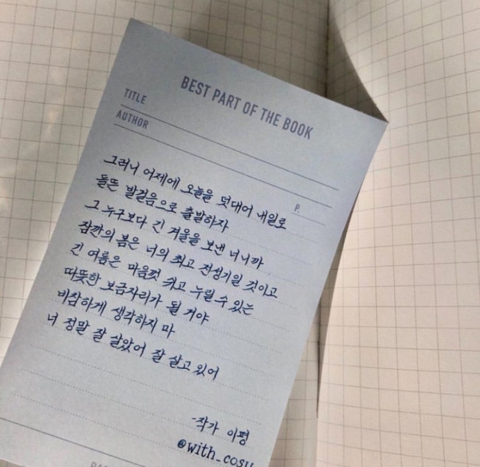 BEST PART OF THE BOOK
TITLE
AUTHOR
P.
그러니 어제에 오늘을 덧대어 내일로
들뜬 발걸음으로 출발하자
그 누구보다 긴 겨울을 보낸 너니까
잠깐의 봄은 너의 최고 전성기일 것이고
긴 여름은 마음껏 쉬고 누릴 수 있는
따뜻한 보금자리가 될 거야
비참하게 생각하지 마
너 정말 잘 살았어 잘 살고 있어
-작가 이평
@with_cosu